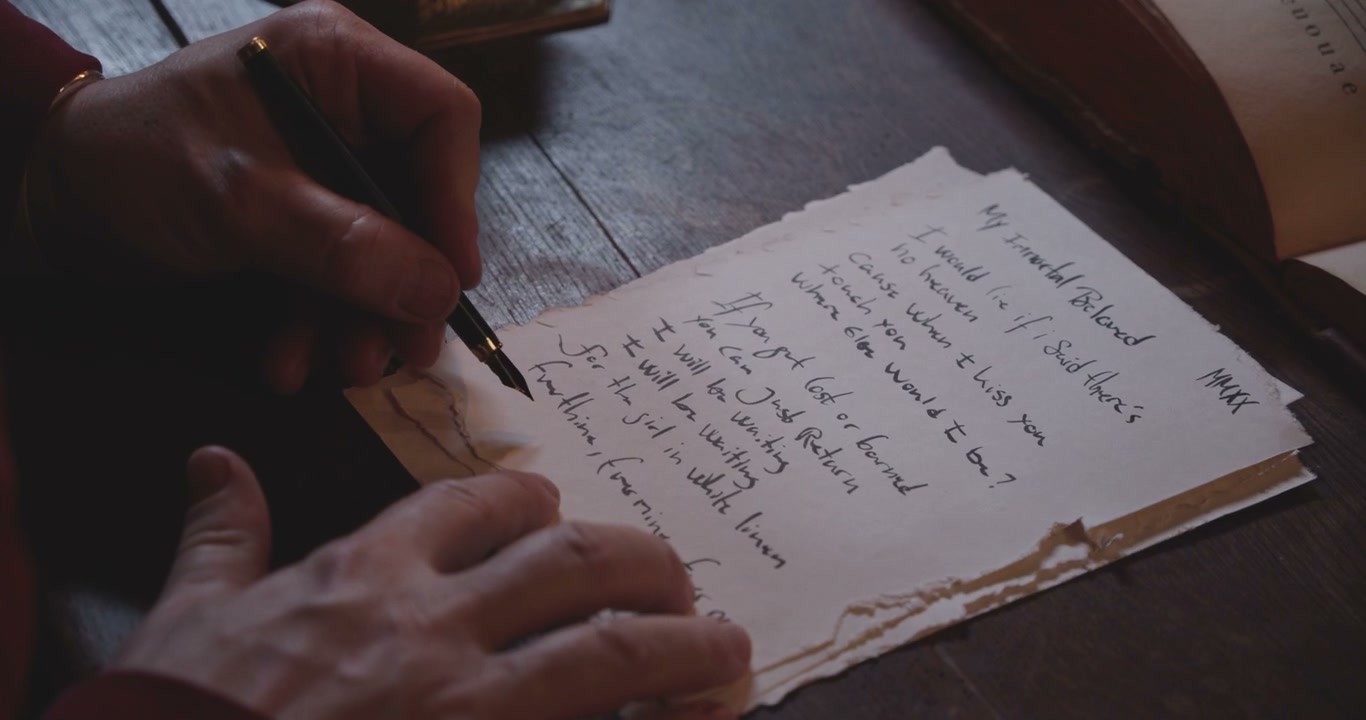 MMXX
My Immortal Beloved
I would lie if i Said there's
no heaven
Cause when I kiss you
touch you
where else would I be?
If you get lost or burned
you can Just Return
I will be waiting
I will be waiting
for the girl in white linen
enouae